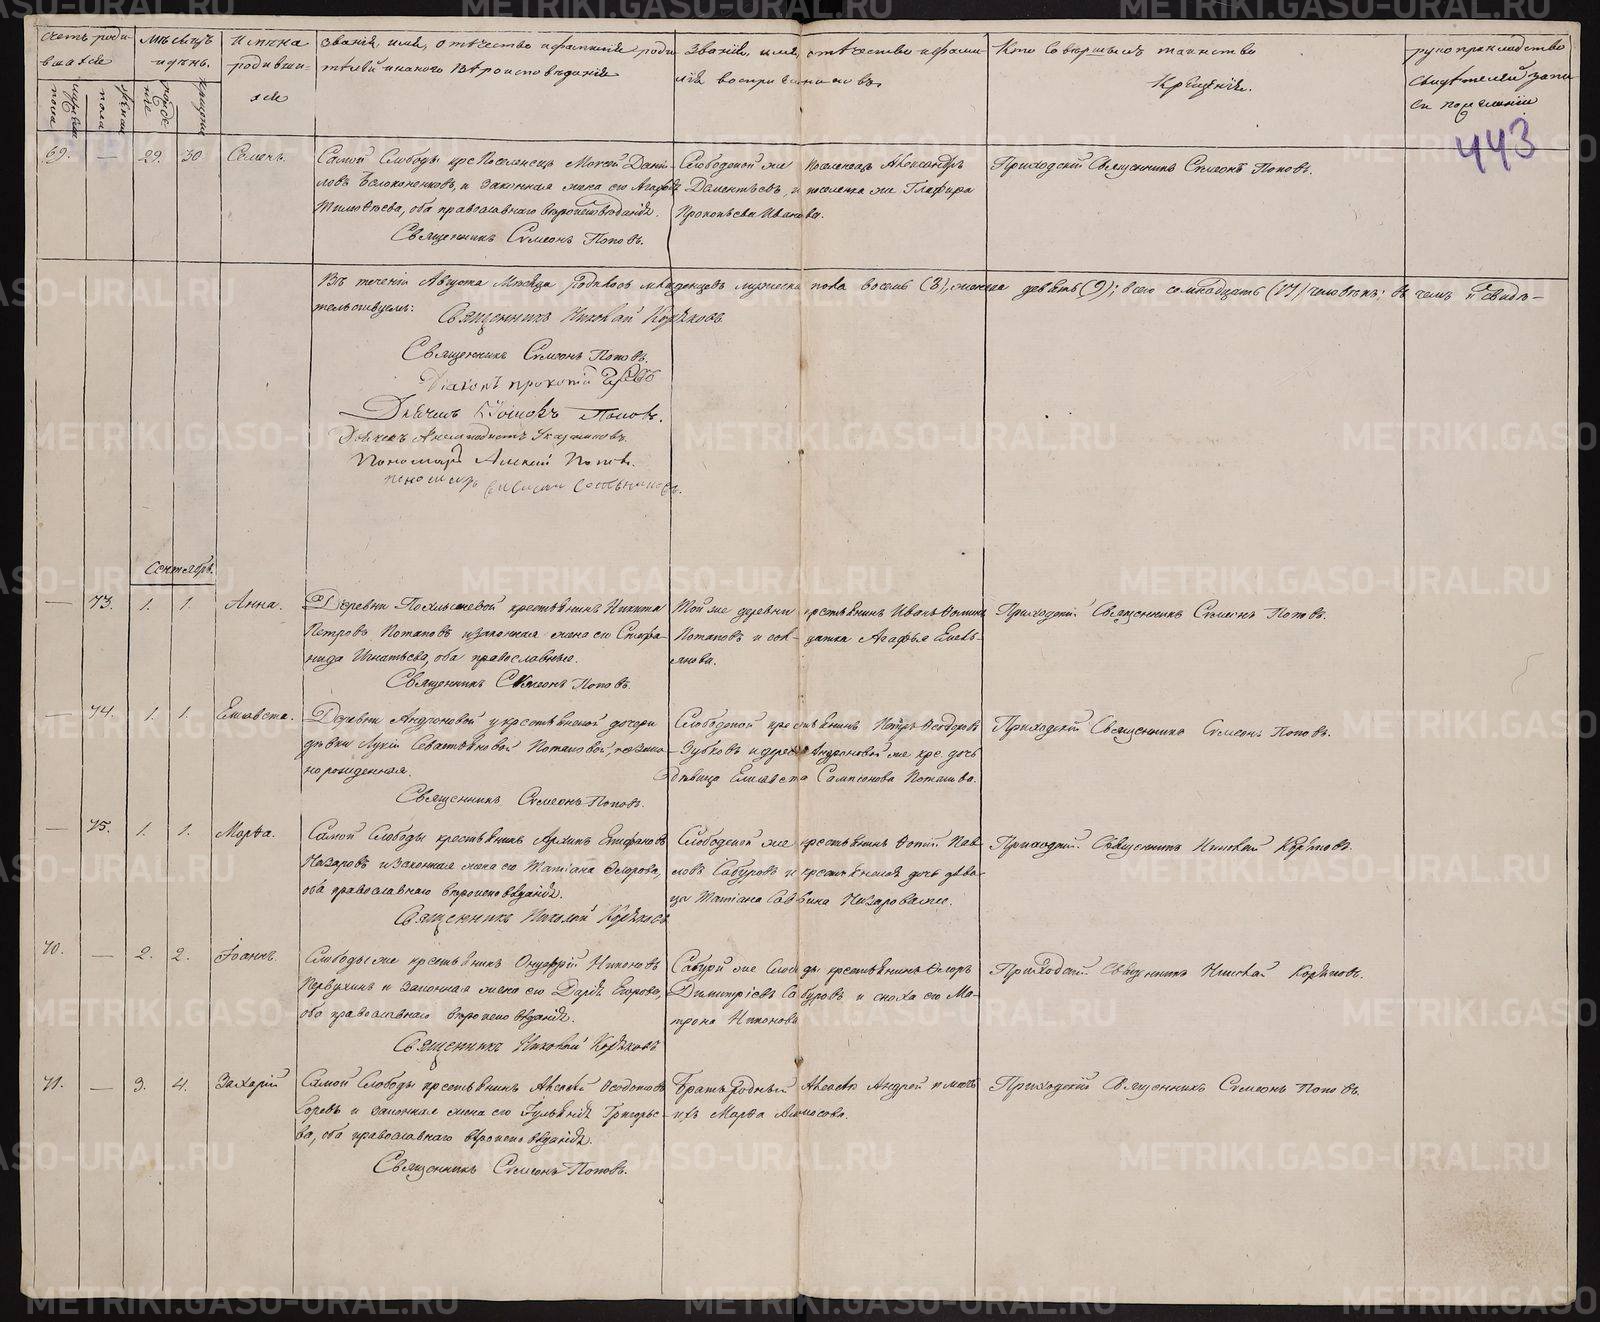 METRIKI.GASO-URAL.RU
443
Счетъ роди-
вшихся
Мѣсяцъ
и день.
Имена
родивши-
хся
Званіе, имя, отчество и фамилія роди-
телей и какого вѣроисповѣданія
Званіе, имя, отчество и фами-
лія воспріемниковъ
Кто совершалъ таинство
Крещенія.
рукоприкладство
свидѣтелей записи
по желанію
мужеска
пола
женска
пола
рожде-
ніе
крещенія
69. — 29. 30. Семенъ.
Самой Слободы
и законная жена его
Тимофеева, оба православнаго вѣроисповѣданія.
Священникъ Сѵмеонъ Поповъ.
Слободской же поселенецъ Александръ
Дементьевъ, и поселенка же Глафира
Прокопьева Иванова.
Приходскій Священникъ Сѵмеонъ Поповъ.
Въ теченіи Августа Мѣсяца родилось младенцовъ мужеска пола восемь (8), женска девять (9); всего семнадцать (17) человѣкъ; въ чемъ и свидѣ-
тельствуемъ:
Священникъ Николай
Священникъ Сѵмеонъ Поповъ.
Діаконъ
Дьячекъ Поповъ.
Дьячекъ
Пономарь Алексѣй Поповъ.
пономарь
Сентябрь.
— 73. 1. 1. Анна.
Деревни крестьянинъ Никита
Петровъ Потаповъ и законная жена его Стефа-
нида Игнатьева, оба православные.
Священникъ Сѵмеонъ Поповъ.
Той же деревни крестьянинъ Иванъ
Потаповъ и сол-датка Агафья Емель-
янова.
Приходскій Священникъ Сѵмеонъ Поповъ.
— 74. 1. 1. Елисавета.
Деревни Андроновой у крестьянской дочери
дѣвки Лукіи Севастьяновой Потаповой, незакон-
норожденная.
Священникъ Сѵмеонъ Поповъ.
Слободской крестьянинъ Петръ
Зубковъ и деревни Андроновой же кре. дочь
дѣвица Елисавета Сампсонова Потапова.
Приходскій Священникъ Сѵмеонъ Поповъ.
— 75. 1. 1. Марѳа.
Самой Слободы крестьянинъ Архипъ Епифановъ
Назаровъ и законная жена его Татіана Ѳедорова,
оба православнаго вѣроисповѣданія.
Священникъ Николай
Слободской же крестьянинъ Фотій Пав-
ловъ Сабуровъ и крестьянская дочь дѣви-
ца Татіана Саввина Назарова же.
Приходскій Священникъ Николай
70. — 2. 2. Іоаннъ.
Слободы же крестьянинъ Онуфрій Никоновъ
Первухинъ и законная жена его Дарія Егорова,
оба православнаго вѣроисповѣданія.
Священникъ Николай
же Слободы крестьянинъ Ѳедоръ
Димитріевъ Сабуровъ и сноха его Ма-
трона Никонова
Приходскій Священникъ Николай
71. — 3. 4. Захарій
Самой Слободы крестьянинъ Алексѣй
и законная жена его Іуліанія Григорье-
ва, оба православнаго вѣроисповѣданія.
Священникъ Сѵмеонъ Поповъ.
Братъ родный Алексѣя Андрей и мать
ихъ Марѳа
Приходскій Священникъ Сѵмеонъ Поповъ.